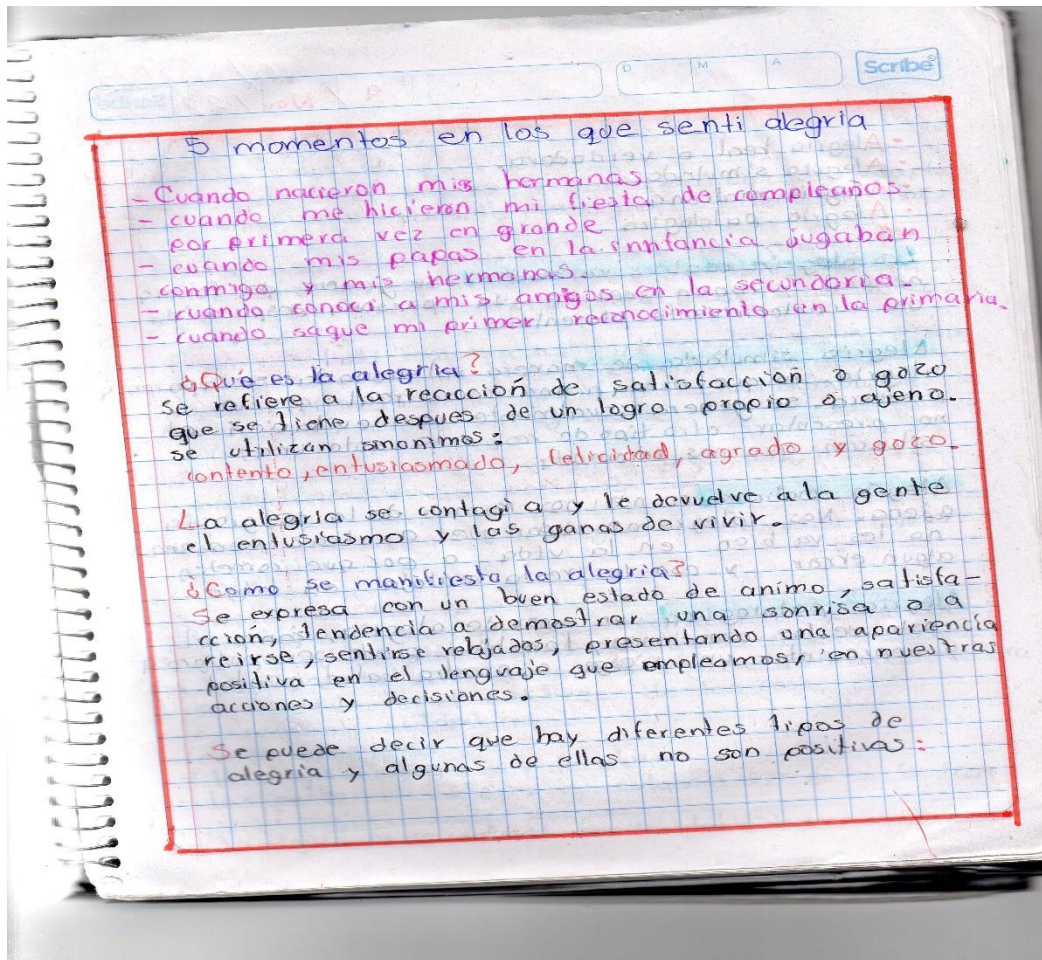 D M A Scribe
5 momentos en los que senti alegria
- Cuando nacieron mis hermanas
- cuando me hicieron mi fiesta de compleaños
por primera vez en grande
- cuando mis papas en la innfancia jugaban
conmigo y mis hermanas.
- cuando conoci a mis amigos en la secundaria.
- cuando saque mi primer reconocimiento en la primaria.
¿Que es la alegria?
se refiere a la reacción de satisfacción o gozo
que se tiene despues de un logro propio o ajeno.
se utilizan sinonimos:
contento, entusiasmado, felicidad, agrado y gozo.
La alegria se contagia y le devuelve a la gente
el entusiasmo y las ganas de vivir.
¿Como se manifiesta la alegria?
Se expresa con un buen estado de animo, satisfa-
cción, tendencia a demostrar una sonrisa o a
reirse, sentirse relajados, presentando una apariencia
positiva en el lenguaje que empleamos, en nuestras
acciones y decisiones.
Se puede decir que hay diferentes tipos de
alegria y algunas de ellas no son positivas: